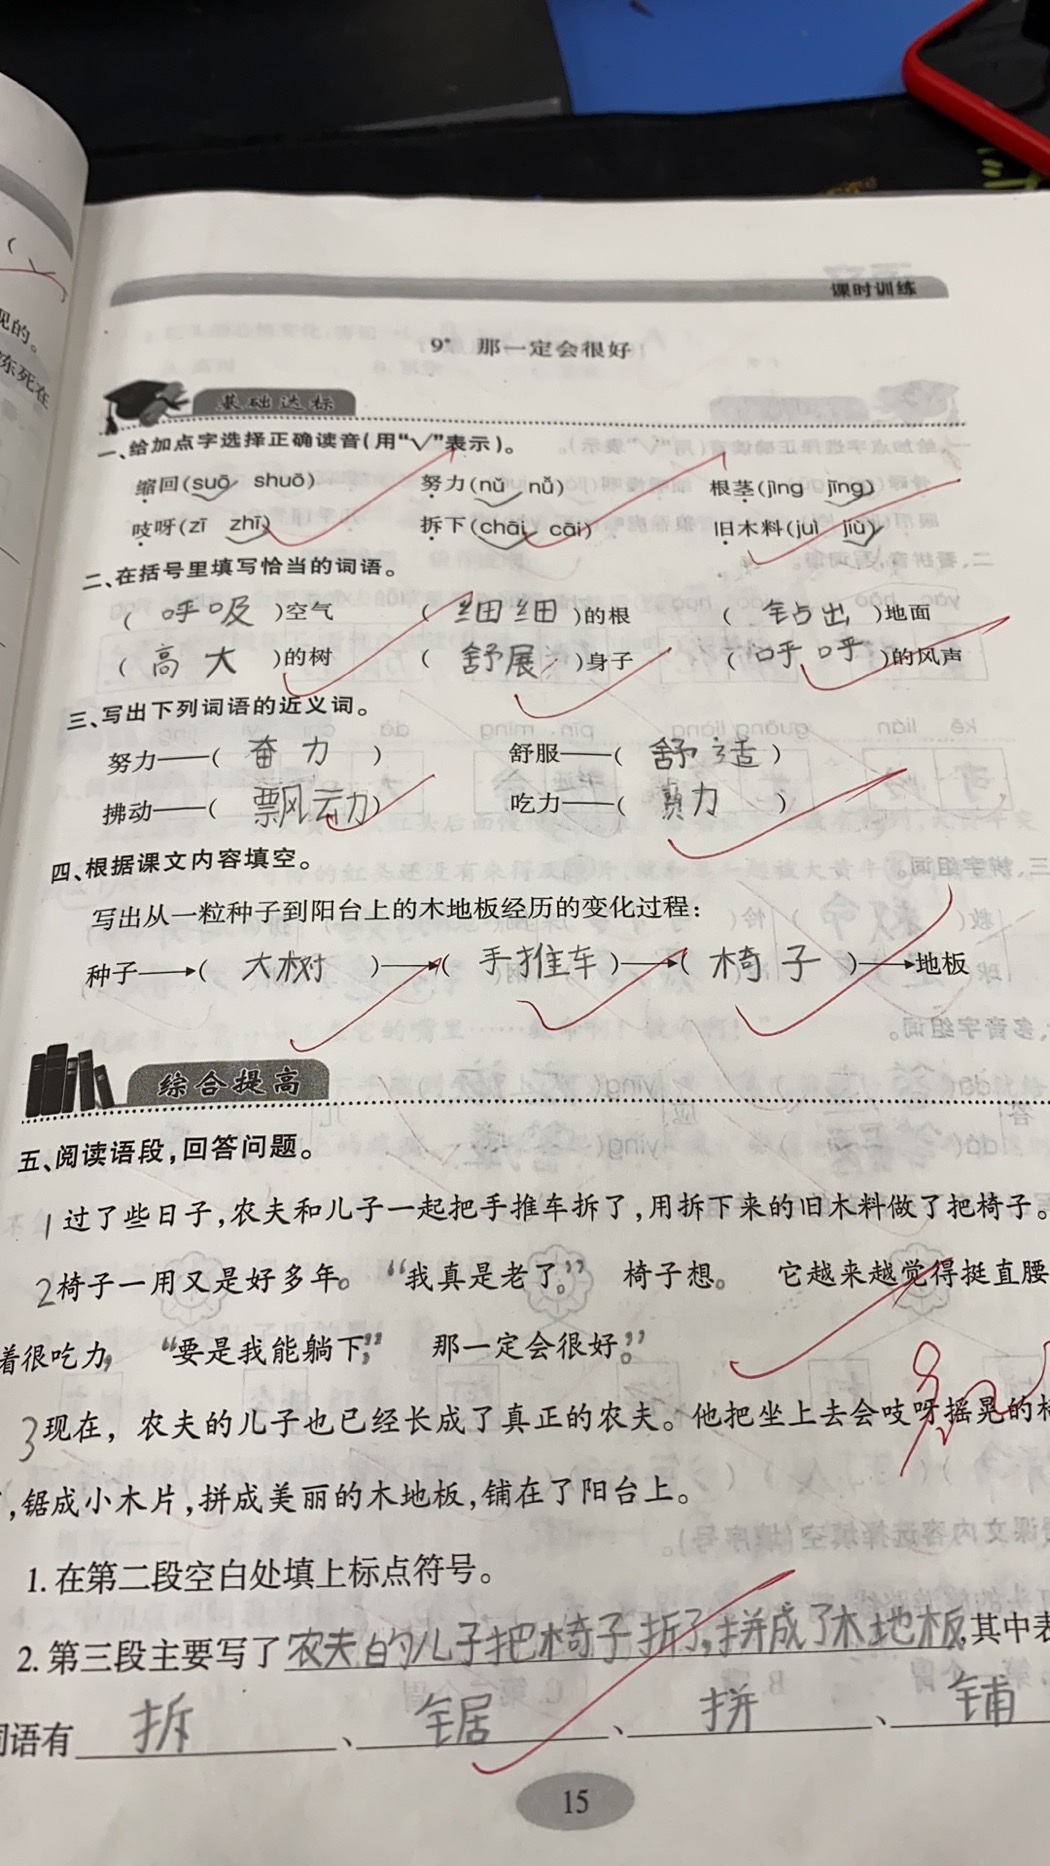 现的。
冻死在
课时训练
9* 那一定会很好
基础达标
一、给加点字选择正确读音(用“√”表示)。
缩回(suō shuō) 努力(nǔ nǚ) 根茎(jìng jīng)
吱呀(zī zhī) 拆下(chāi cāi) 旧木料(juì jiù)
二、在括号里填写恰当的词语。
(呼吸)空气 (细细)的根 (钻出)地面
(高大)的树 (舒展)身子 (呼呼)的风声
三、写出下列词语的近义词。
努力——(奋力) 舒服——(舒适)
拂动——(飘动) 吃力——(费力)
四、根据课文内容填空。
写出从一粒种子到阳台上的木地板经历的变化过程:
种子→(大树)→(手推车)→(椅子)→地板
综合提高
五、阅读语段,回答问题。
1过了些日子,农夫和儿子一起把手推车拆了,用拆下来的旧木料做了把椅子。
2椅子一用又是好多年。“我真是老了。”椅子想。它越来越觉得挺直腰
着很吃力,“要是我能躺下,”那一定会很好。”
3现在,农夫的儿子也已经长成了真正的农夫。他把坐上去会吱呀摇晃的
,锯成小木片,拼成美丽的木地板,铺在了阳台上。
1. 在第二段空白处填上标点符号。
2. 第三段主要写了农夫的儿子把椅子拆了,拼成了木地板,其中表
词语有 拆 、 锯 、 拼 、 铺
15